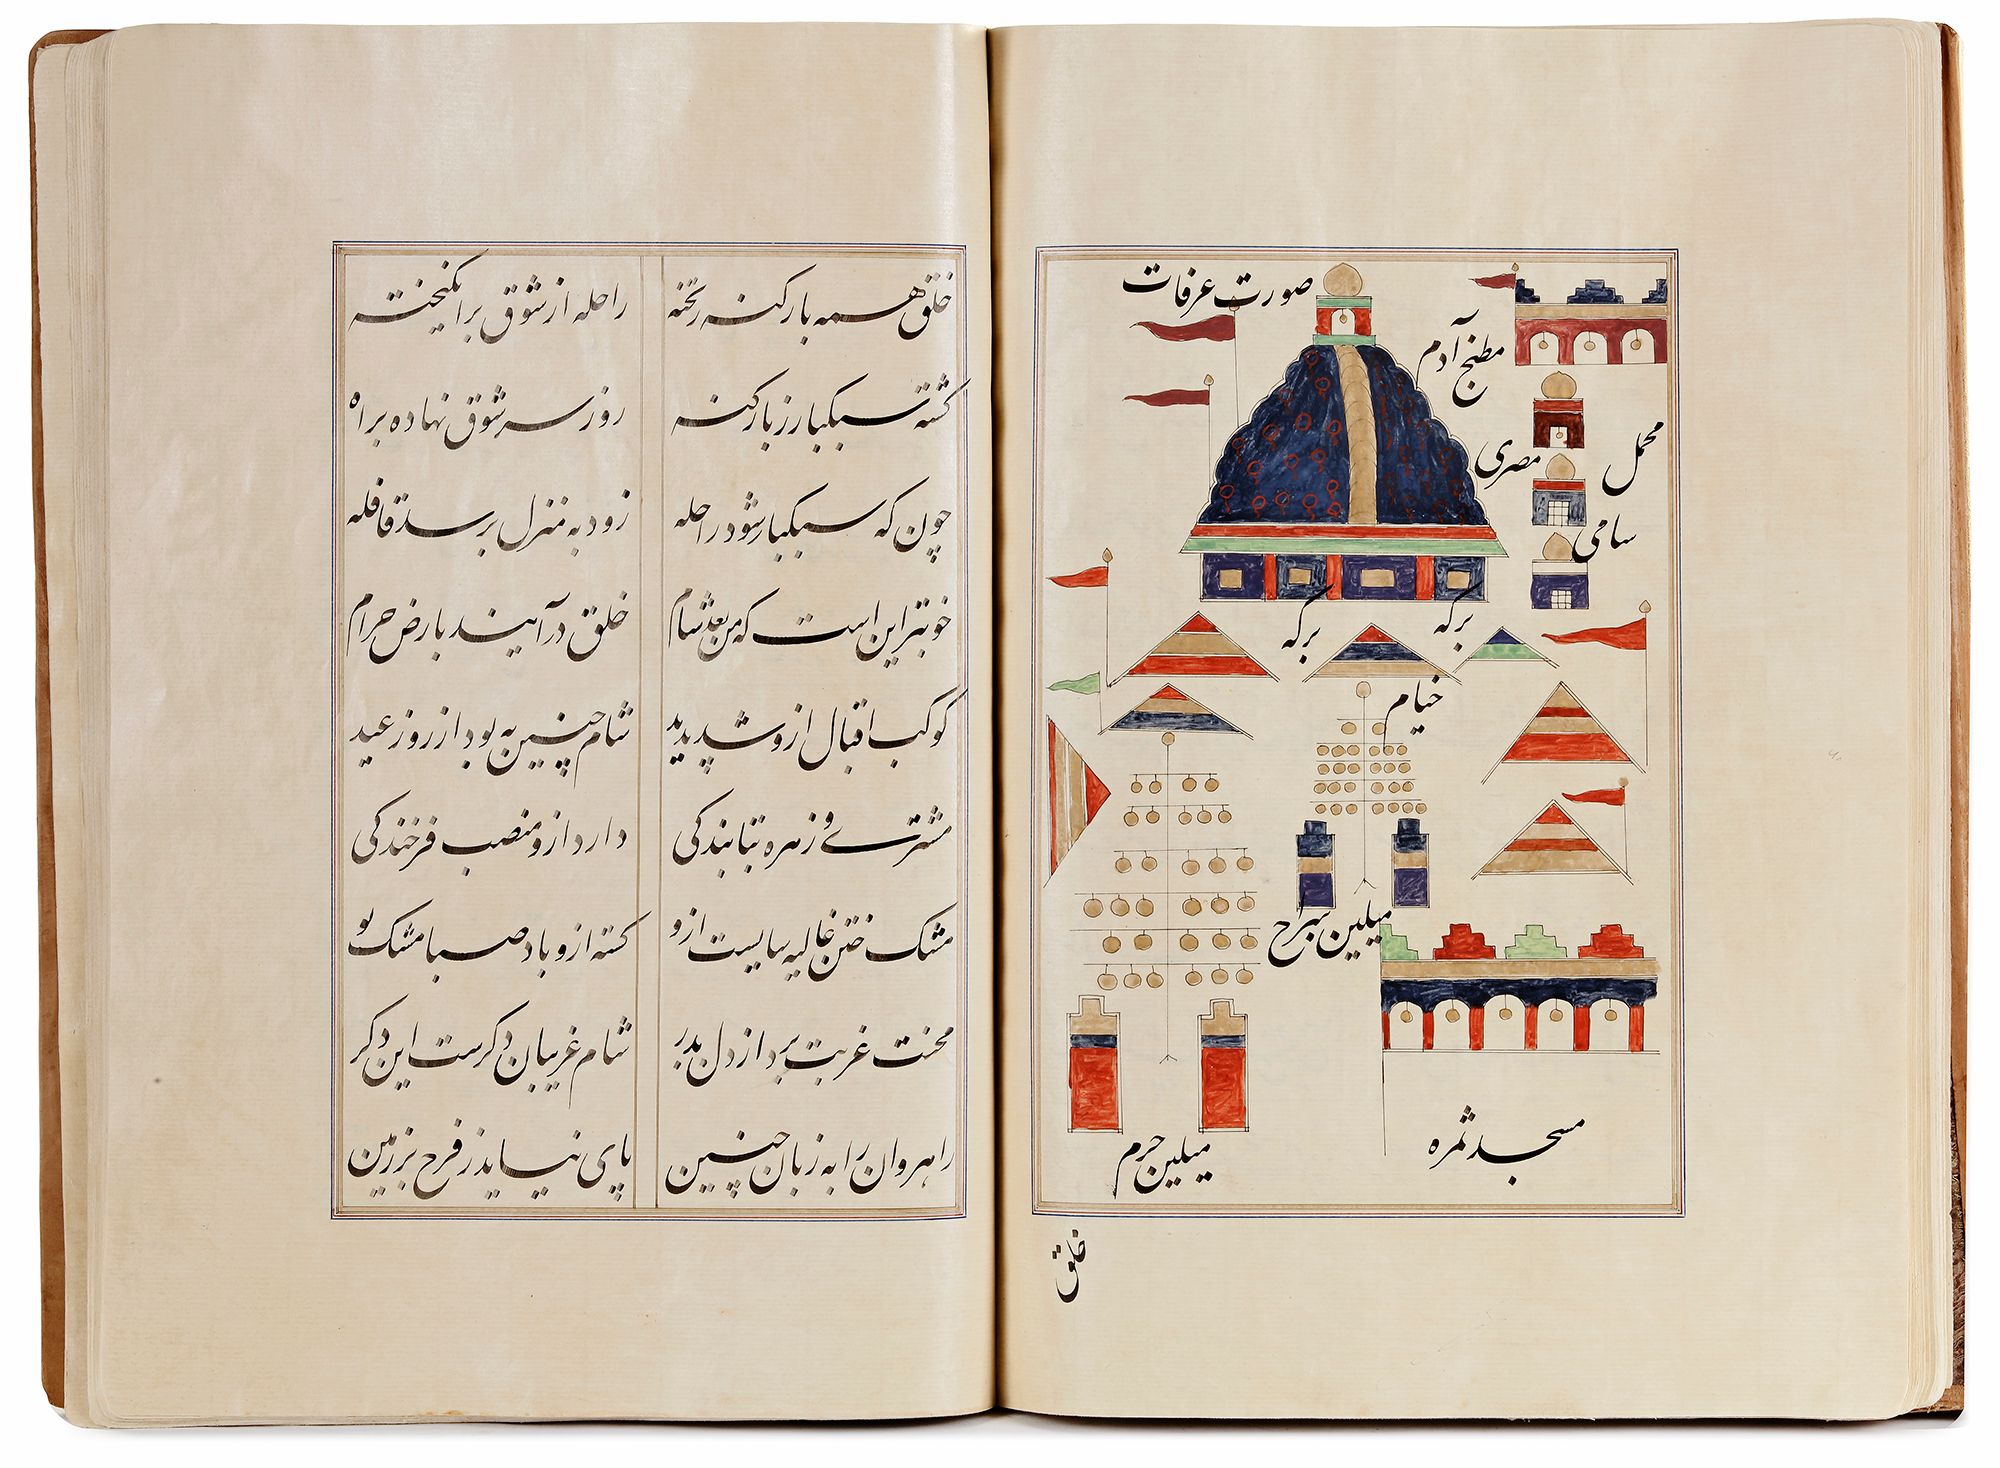 صورت عرفات
مطبخ آدم
محمل
مصری
سامی
برکه
برکه
خیام
میلین سراح
میلین حرم
مسجد ثمره
خلق
خلق همه بار کنه ریخته
راحله از شوق برانگیخته
گشته سبکبار ز بار کنه
روز سر شوق نهاده براه
چون که سبکبار شود راحله
زود به منزل برسد قافله
خوبتر این است که من بعد شام
خلق در آیند بارض حرام
کوکب اقبال ازو شد پدید
شام چنین به بود از روز عید
مشتری و زهره بتابندکی
دارد ازو منصب فرخندکی
مشک ختن غالیه سایست ازو
کشته ازو باد صبا مشک بو
محنت غربت برد از دل بدر
شام غریبان دکرست این دکر
راهروان را به زبان چنین
پای نیاید ز فرح بر زمین